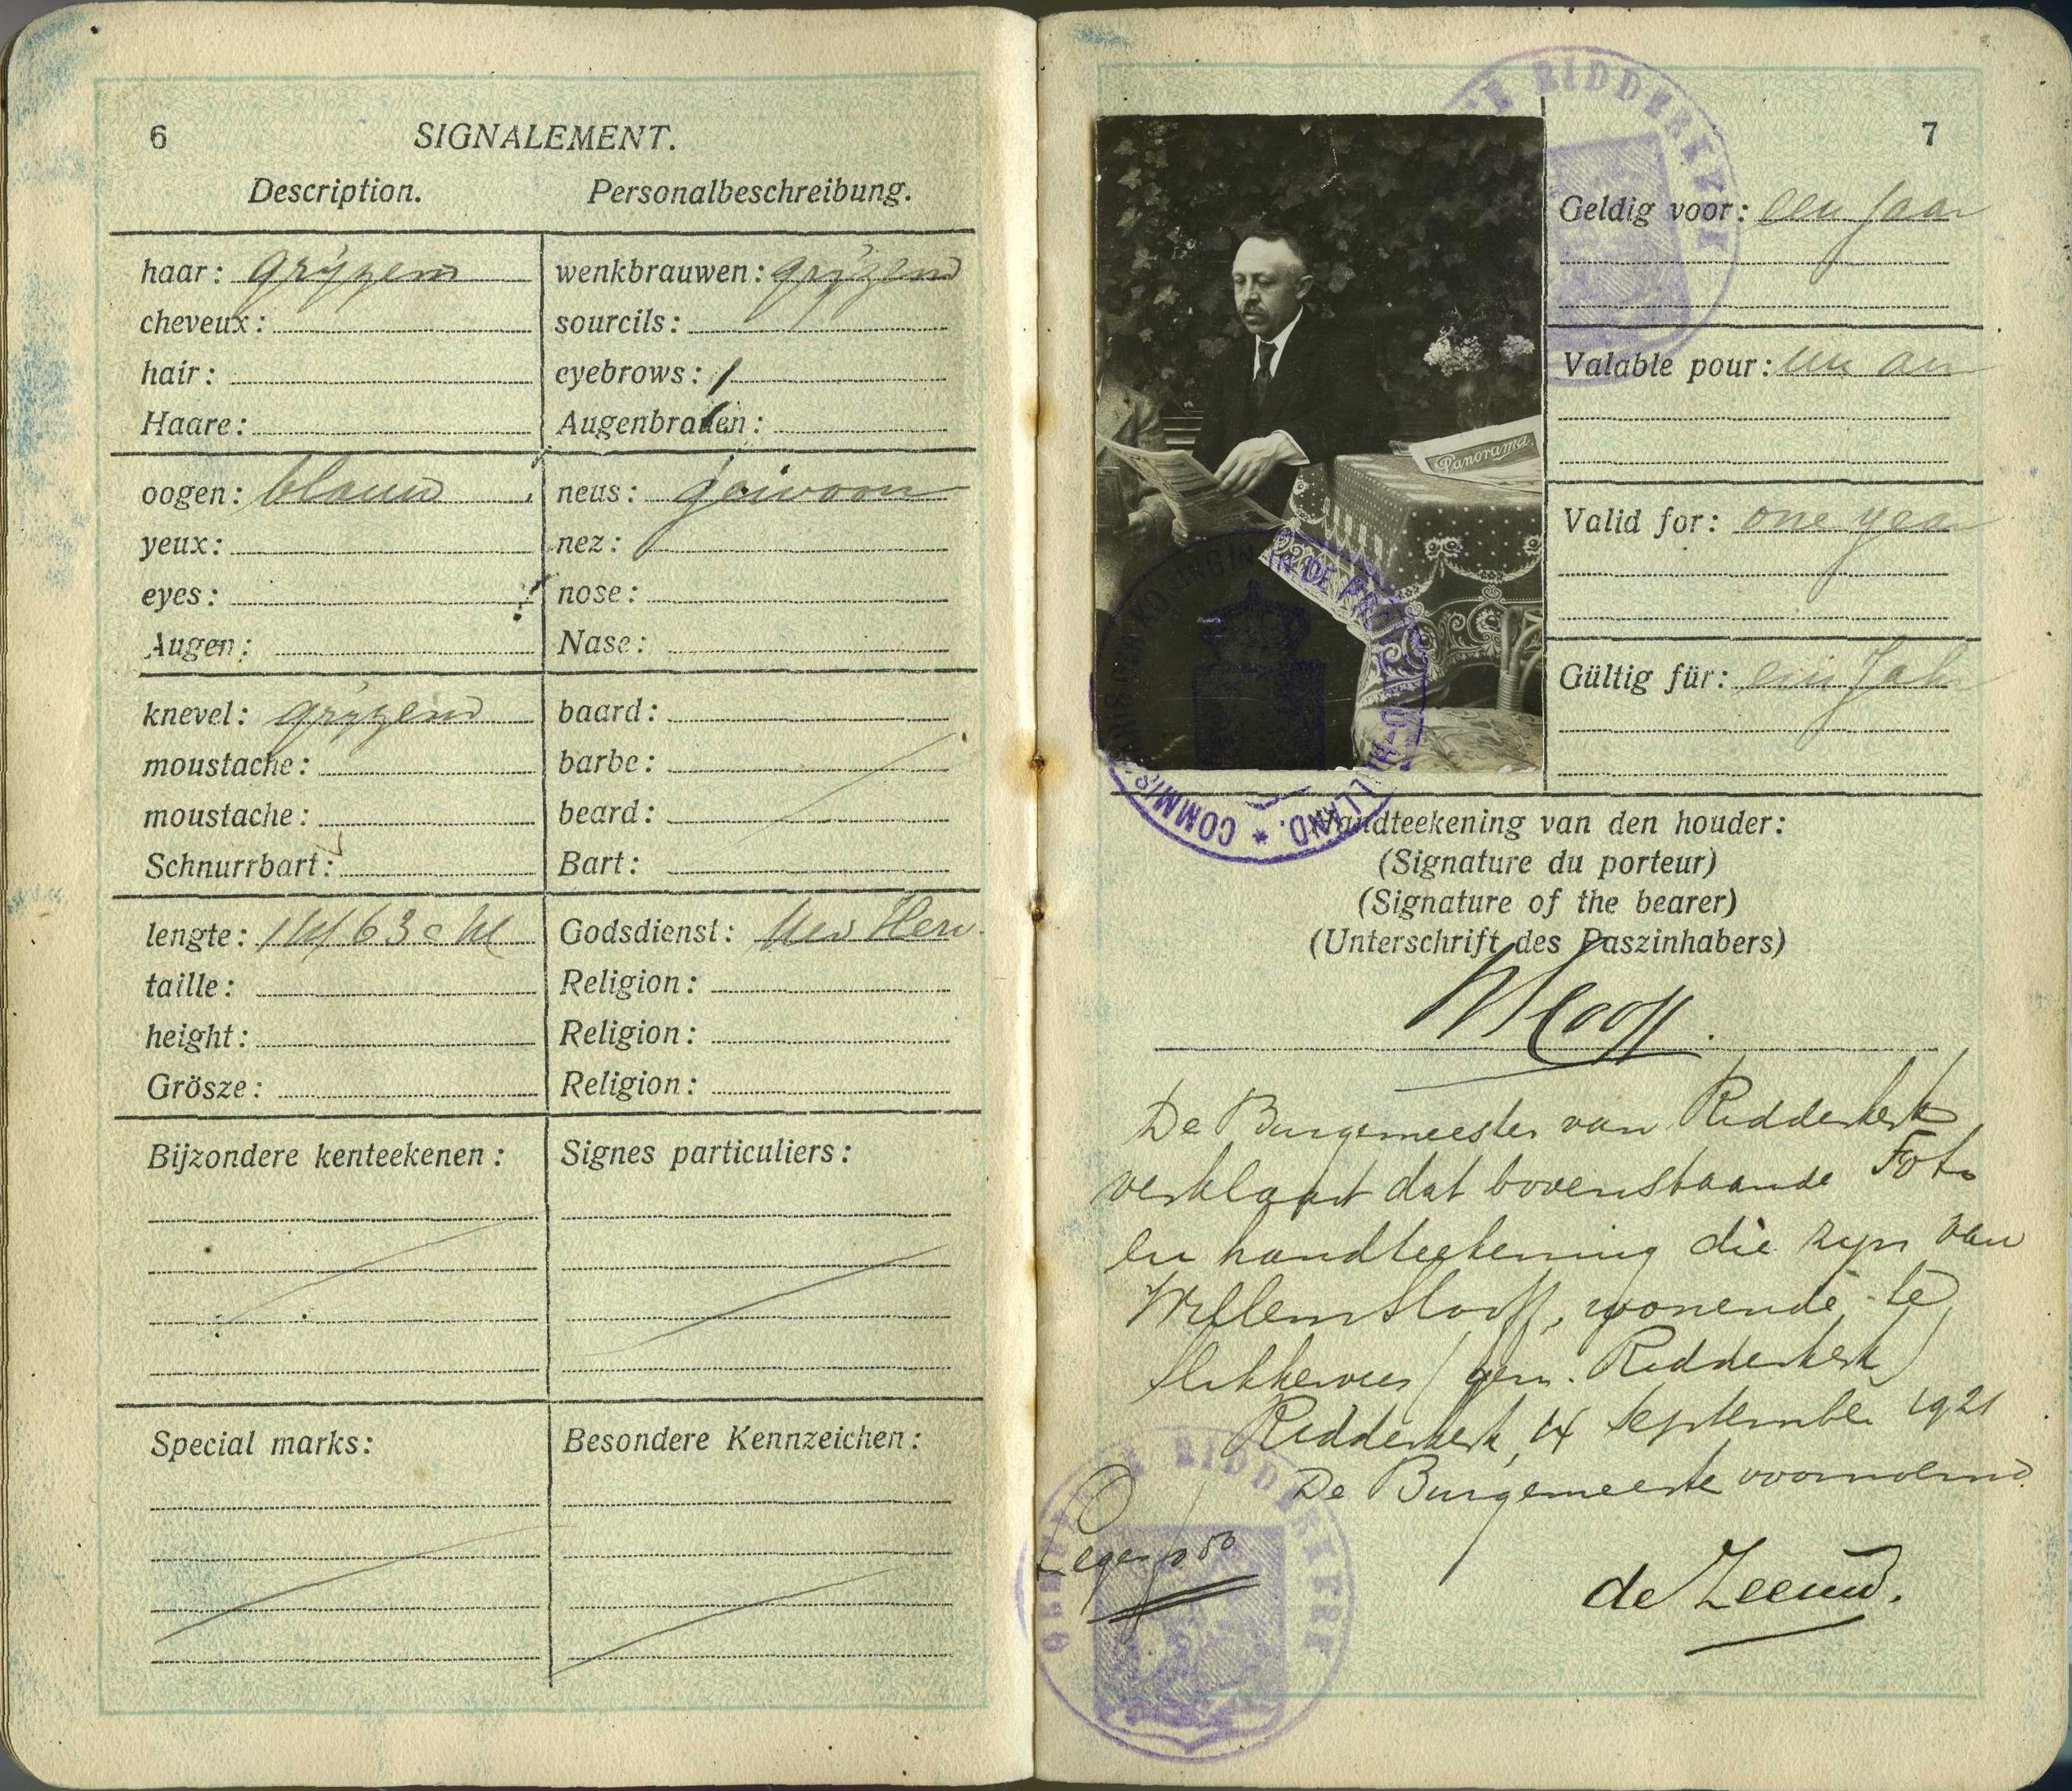 6
SIGNALEMENT.
Description. Personalbeschreibung.
haar: grijzend
cheveux:
hair:
Haare:
wenkbrauwen: grijzend
sourcils:
eyebrows:
Augenbrauen:
oogen: blauw
yeux:
eyes:
Augen:
neus: gewoon
nez:
nose:
Nase:
knevel: grijzend
moustache:
moustache:
Schnurrbart:
baard:
barbe:
beard:
Bart:
lengte: 1 M 63 c M
taille:
height:
Grösze:
Godsdienst: Ned Herv.
Religion:
Religion:
Religion:
Bijzondere kenteekenen:
Signes particuliers:
Special marks:
Besondere Kennzeichen:
7
RIDDERKERK
Panorama
Geldig voor: een jaar
Valable pour: un an
Valid for: one year
Gültig für: ein Jahr
IN DE PROV
HOLLAND. * COMMIS
Handteekening van den houder:
(Signature du porteur)
(Signature of the bearer)
(Unterschrift des Paszinhabers)
W Slooff.
De Burgemeester van Ridderkerk
verklaart dat bovenstaande Foto
en handteekening die zijn van
Willem Slooff, wonende te
Slikkerveer (gem. Ridderkerk)
Ridderkerk, 14 September 1921
De Burgemeester voornoemd.
de Zeeuw.
Leges 50
GEMEENTE RIDDERKERK